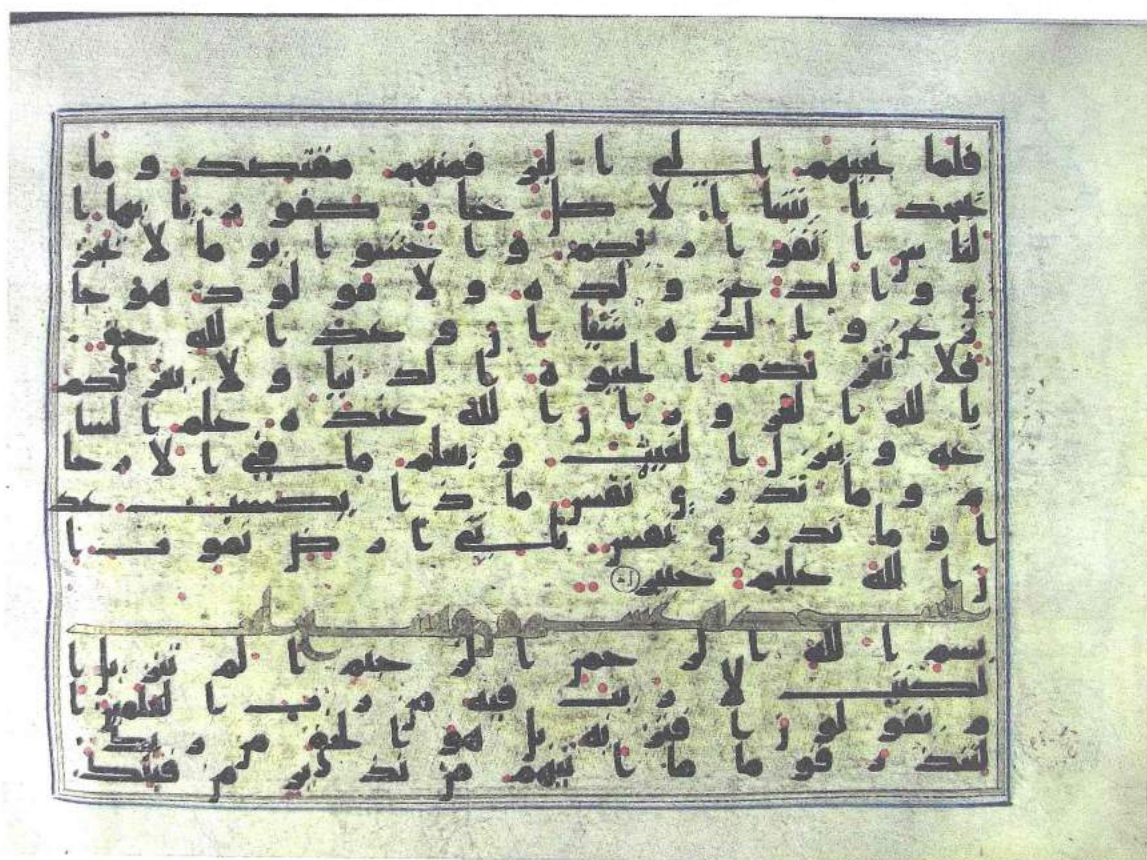 فلما نجيهم الى البر فمنهم مقتصد و ما
يجحد بايتنا الا كل ختار كفور يايها ا
لناس اتقوا ربكم و اخشوا يوما لا يجز
ي والد عن ولده و لا مولود هو جا
ز عن والده شيا ان وعد الله حق
فلا تغرنكم الحيوة الدنيا و لا يغرنكم
بالله الغرور ان الله عنده علم السا
عة و ينزل الغيث و يعلم ما في الارحا
م و ما تدري نفس ماذا تكسب غد
ا و ما تدري نفس باي ارض تموت ا
ن الله عليم خبير
السجده عشرون وتسع
بسم الله الرحمن الرحيم الم تنزيل ا
لكتب لا ريب فيه من رب العلمين ا
م يقولون افتريه بل هو الحق من ربك
لتنذر قوما ما اتيهم من نذير من قبلك